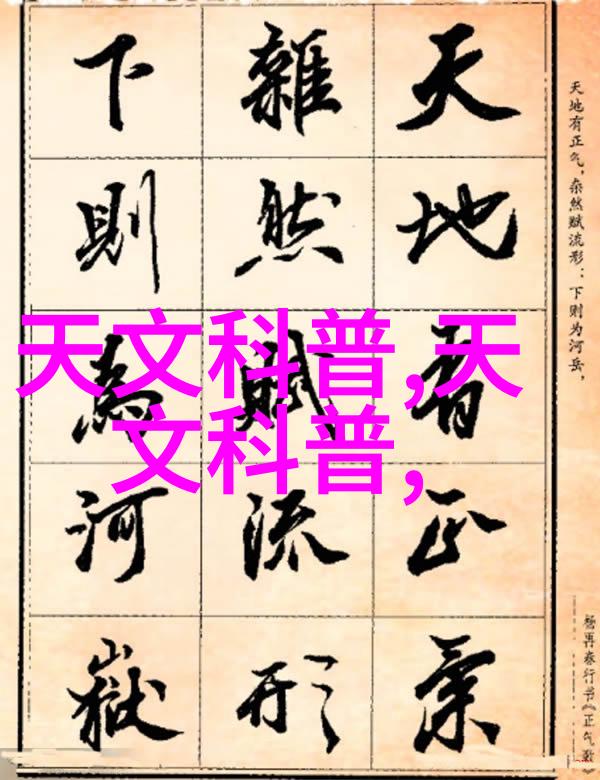 天地有正氣
雜然賦流形
下則為河嶽
天地有正气，杂然赋流形：下则为河岳，
杨再春行书《正气歌》
天文科普,天
文科普,